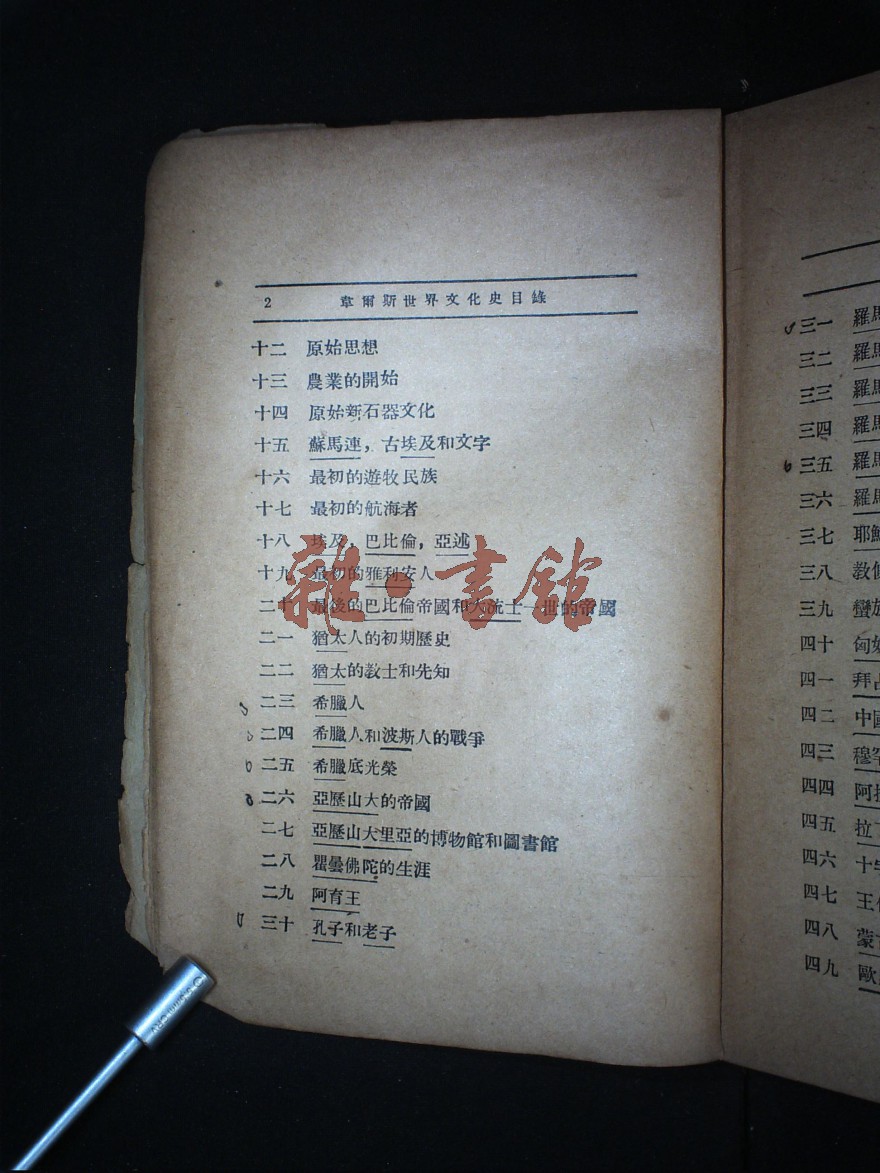 2 韋爾斯世界文化史目錄
十二 原始思想
十三 農業的開始
十四 原始新石器文化
十五 蘇馬連，古埃及和文字
十六 最初的遊牧民族
十七 最初的航海者
十八 埃及，巴比倫，亞述
十九 最初的雅利安人
二十 最後的巴比倫帝國和大流士一世的帝國
二一 猶太人的初期歷史
二二 猶太的教士和先知
二三 希臘人
二四 希臘人和波斯人的戰爭
二五 希臘底光榮
二六 亞歷山大的帝國
二七 亞歷山大里亞的博物館和圖書館
二八 瞿曇佛陀的生涯
二九 阿育王
三十 孔子和老子
雜·書館
三一 羅馬
三二 羅馬
三三 羅馬
三四 羅馬
三五 羅馬
三六 羅馬
三七 耶穌
三八 教
三九 蠻族
四十 匈奴
四一 拜占
四二 中國
四三 穆罕
四四 阿拉
四五 拉丁
四六 十字
四七 王
四八 蒙古
四九 歐